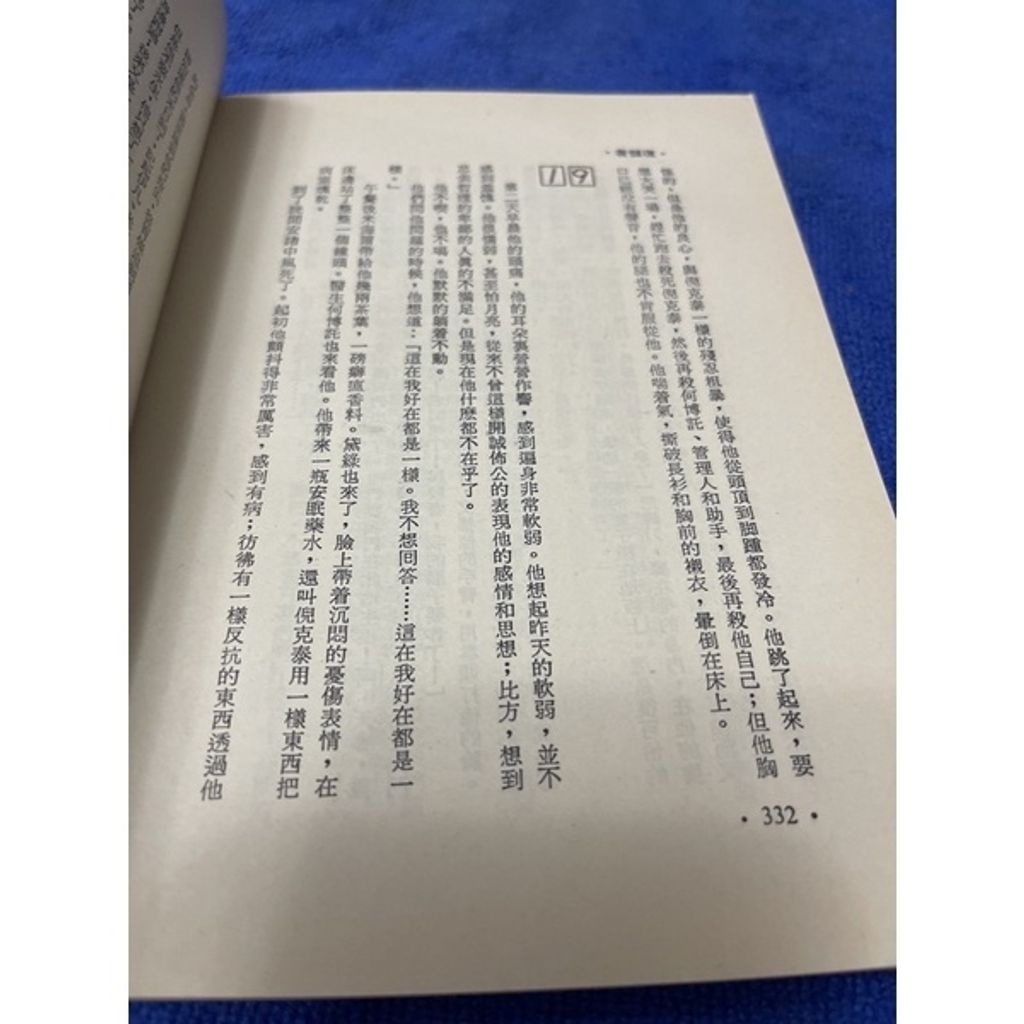 他的，但是他的良心，與倪克泰一樣的殘忍粗暴，使得他從頭頂到脚踵都發冷。他跳了起來，要
想大哭一場，趕忙跑去殺死倪克泰，然後再殺何博託、管理人和助手，最後再殺他自己；但他胸
口已經沒有聲音，他的腿也不肯服從他。他喘着氣，撕破長衫和胸前的襯衣，暈倒在床上。
19
第二天早晨他的頭痛，他的耳朵裏營營作響，感到遍身非常軟弱。他想起昨天的軟弱，並不
感到羞愧。他很懦弱，甚至怕月亮，從來不曾這樣開誠佈公的表現他的感情和思想；比方，想到
哲理的卑鄙的人眞的不滿足。但是現在他什麽都不在乎了。
他不喫，也不喝。他默默的躺着不動。
他們問他問題的時候，他想道：「這在我好在都是一樣。我不想囘答……這在我好在都是一
樣。」
午餐後米海爾帶給他幾兩茶葉，一磅香料。黛綠也來了，臉上帶着沉悶的憂傷表情，在
床邊站了整整一個鐘頭。醫生何博託也來看他。他帶來一瓶安眠藥水，還叫倪克泰用一樣東西把
病室燻乾。
到了晚間安諸中風死了。起初他顫抖得非常厲害，感到有病；彷彿有一樣反抗的東西透過他
• 332 •